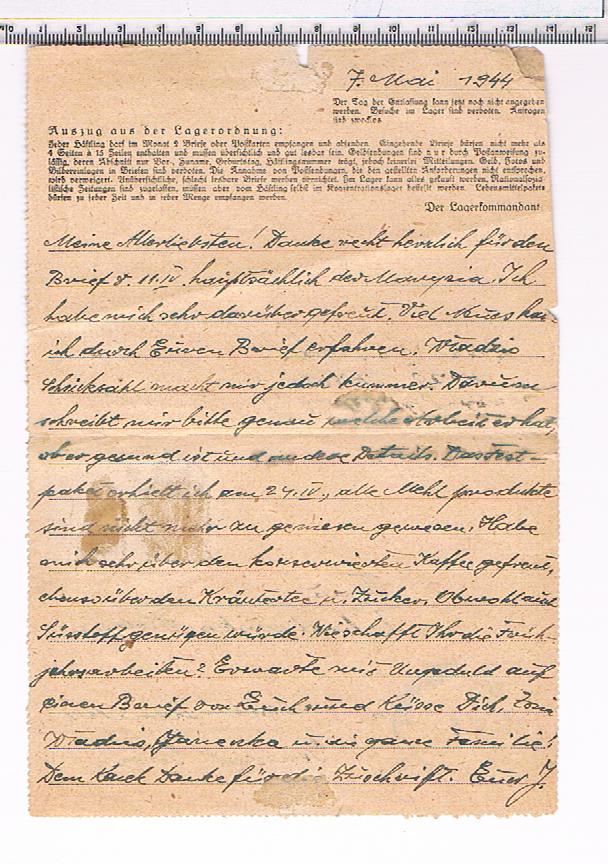 0 1 2 3 4 5 6 7 8 9 10 11 12 13 14 15
7. Mai 1944
Der Tag der Entlassung kann jetzt noch nicht angegeben
werden. Besuche im Lager sind verboten. Anfragen
sind zwecklos
Auszug aus der Lagerordnung:
Jeder Häftling darf im Monat 2 Briefe oder Postkarten empfangen und absenden. Eingehende Briefe dürfen nicht mehr als
4 Seiten à 15 Zeilen enthalten und müssen übersichtlich und gut lesbar sein. Geldsendungen sind nur durch Postanweisung zu-
lässig, deren Abschnitt nur Vor-, Zuname, Geburtstag, Häftlingsnummer trägt, jedoch keinerlei Mitteilungen. Geld, Fotos und
Bildereinlagen in Briefen sind verboten. Die Annahme von Postsendungen, die den gestellten Anforderungen nicht entsprechen,
wird verweigert. Unübersichtliche, schlecht lesbare Briefe werden vernichtet. Im Lager kann alles gekauft werden. Nationalsozia-
listische Zeitungen sind zugelassen, müssen aber vom Häftling selbst im Konzentrationslager bestellt werden. Lebensmittelpakete
dürfen zu jeder Zeit und in jeder Menge empfangen werden.
Der Lagerkommandant
Meine Allerliebsten! Danke recht herzlich für den
Brief v. 11.IV. hauptsächlich der Marysia. Ich
habe mich sehr darüber gefreut. Viel
ich durch Euren Brief erfahren. Wladzio
macht mir jedoch Kummer. Darum
schreibt mir bitte genau welche Arbeit er hat,
ob er gesund ist und andere Details. Das Fest-
paket erhielt ich am 24.IV., alle Mehlprodukte
sind nicht mehr zu geniesen gewesen. Habe
mich sehr über den Kaffee gefreut,
ebenso über den Kräutertee u. Zucker. Obwohl auch
Süsstoff genügen würde. Wie schafft Ihr die Früh-
jahrsarbeiten? Erwarte mit Ungeduld auf
einen Brief von Euch und Küsse Dich,
Wladzio, Janenka u. die ganze Familie!
Dem Danke für die Zuschrift. Euer J.